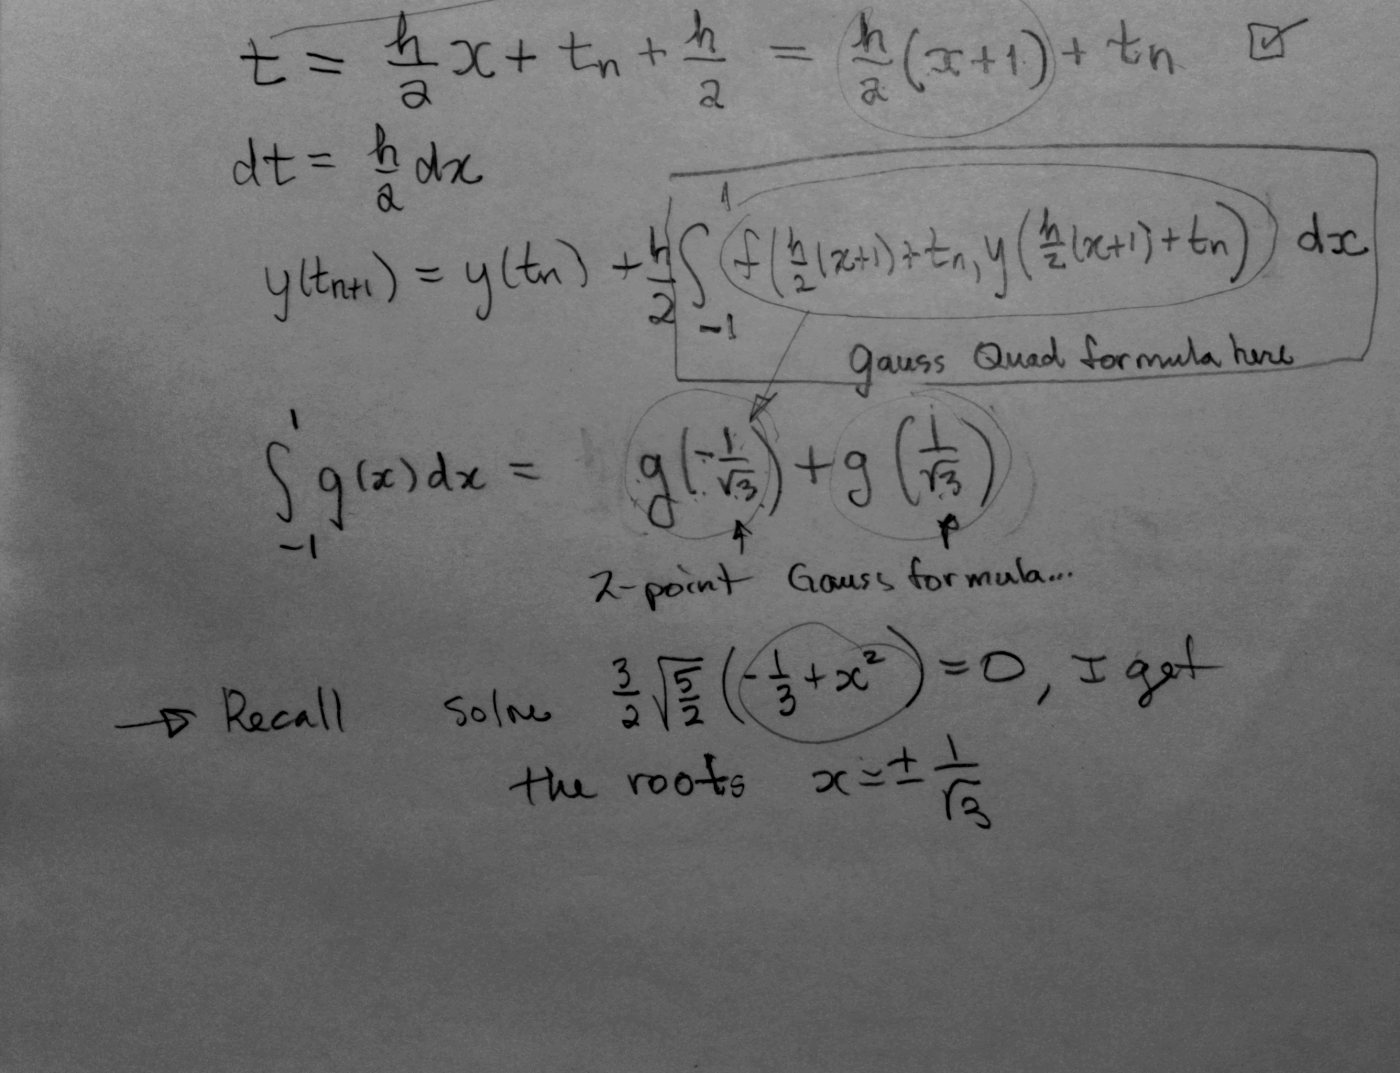 t = h/2 x + tn + h/2 = h/2 (x+1) + tn ☑
dt = h/2 dx
y(tn+1) = y(tn) + h/2 ∫_{-1}^{1} f(h/2 (x+1) + tn, y(h/2 (x+1) + tn)) dx
Gauss Quad formula here
∫_{-1}^{1} g(x) dx = g(-1/√3) + g(1/√3)
2-point Gauss formula...
→ Recall solve 3/2 √(5/2) (-1/3 + x²) = 0, I get
the roots x = ± 1/√3